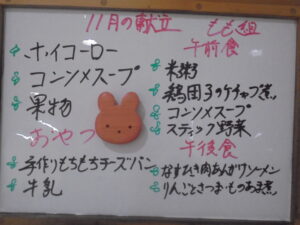 11月の献立
ホイコーロー
コンソメスープ
果物
おやつ
手作りもちもちチーズパン
牛乳
もも組
午前食
米粥
鶏団子のケチャプ煮
コンソメスープ
スティック野菜
午後食
なすひき肉あんかけソーメン
りんごとさつまいものあま煮